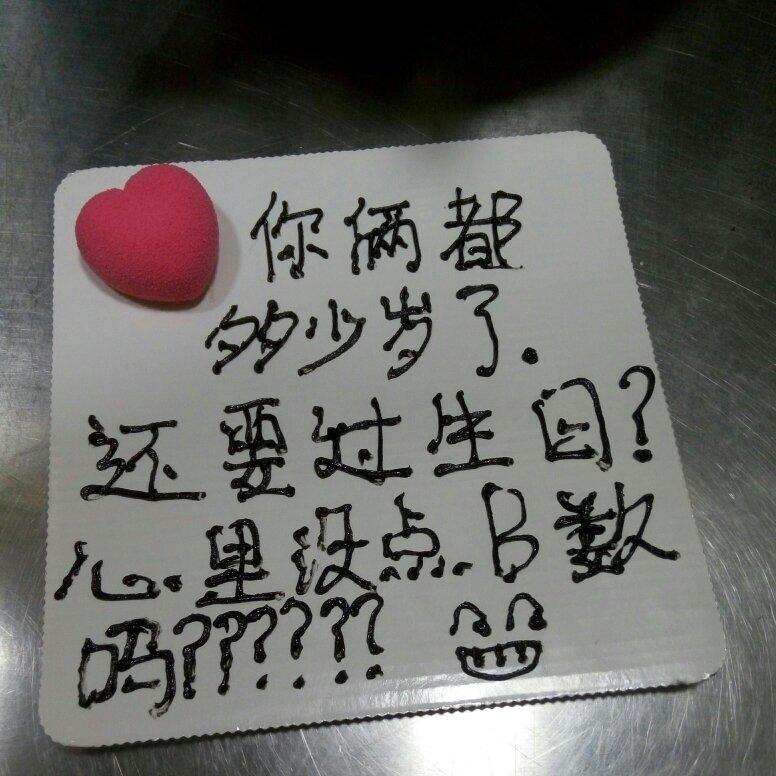 你俩都
多少岁了.
还要过生日?
心里没点B数
吗??????